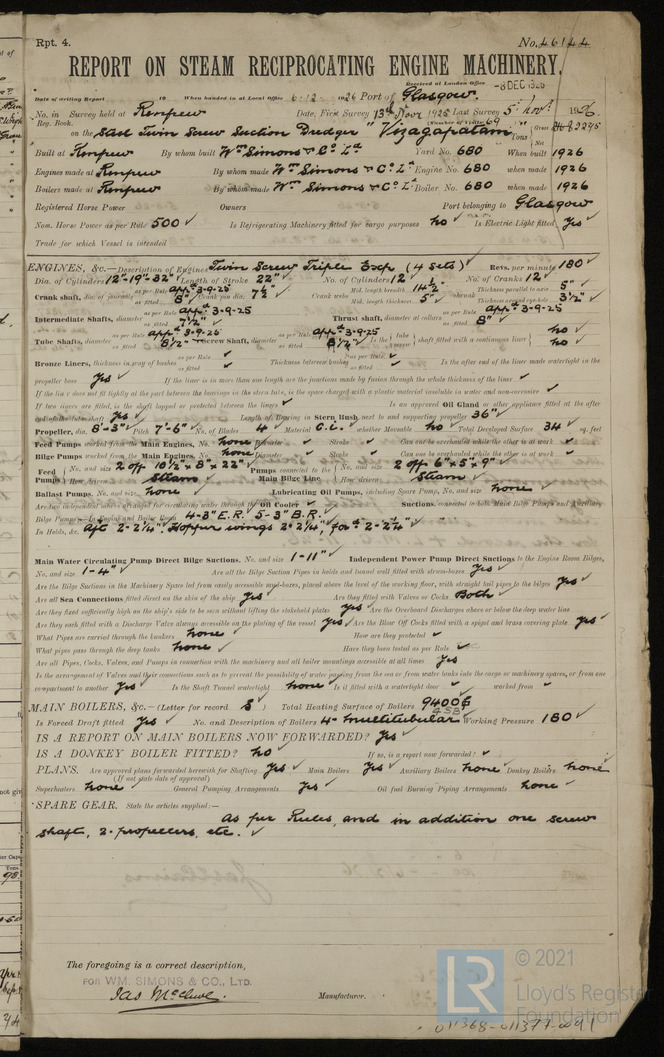 Rpt. 4. No. 46144
REPORT ON STEAM RECIPROCATING ENGINE MACHINERY.
Received at London Office -8 DEC 1926
Date of writing Report 19 When handed in at Local Office 6.12.1926 Port of Glasgow.
No. in Survey held at Renfrew Date, First Survey 13th Novr 1925 Last Survey 5th Novr. 1926.
Reg. Book. (Number of Visits 69
on the Steel Twin Screw Suction Dredger "Vizagapatam" Tons Gross 2295 Net
Built at Renfrew By whom built Wm Simons & Co Ld Yard No. 680 When built 1926
Engines made at Renfrew By whom made Wm Simons & Co Ld Engine No. 680 when made 1926
Boilers made at Renfrew By whom made Wm Simons & Co Ld Boiler No. 680 when made 1926
Registered Horse Power Owners Port belonging to Glasgow
Nom. Horse Power as per Rule 500 ✓ Is Refrigerating Machinery fitted for cargo purposes No ✓ Is Electric Light fitted Yes ✓
Trade for which Vessel is intended
ENGINES, &c.—Description of Engines Twin Screw Triple Exp (4 sets) ✓ Revs. per minute 180 ✓
Dia. of Cylinders 12"-19"-32" Length of Stroke 22" No. of Cylinders 12 No. of Cranks 12 ✓
Crank shaft, dia. of journals as per Rule App 3-9-25 as fitted 8" Crank pin dia. 7½" Crank webs Mid. length breadth 14½" Mid. length thickness 5" shrunk Thickness parallel to axis 5" Thickness around eye-hole 3½" ✓
Intermediate Shafts, diameter as per Rule App 3-9-25 as fitted 7½" ✓ Thrust shaft, diameter at collars as per Rule App 3-9-25 as fitted 8"
Tube Shafts, diameter as per Rule App 3-9-25 as fitted 8½" ✓ Screw Shaft, diameter as per Rule App 3-9-25 as fitted 8½" ✓ Is the tube screw shaft fitted with a continuous liner No ✓ No ✓
Bronze Liners, thickness in way of bushes as per Rule ✓ as fitted ✓ Thickness between bushes as per Rule ✓ as fitted ✓ Is the after end of the liner made watertight in the
propeller boss Yes ✓ If the liner is in more than one length are the junctions made by fusion through the whole thickness of the liner ✓
If the liner does not fit tightly at the part between the bearings in the stern tube, is the space charged with a plastic material insoluble in water and non-corrosive ✓
If two liners are fitted, is the shaft lapped or protected between the liners ✓ Is an approved Oil Gland or other appliance fitted at the after
end of the tube shaft Yes ✓ Length of Bearing in Stern Bush next to and supporting propeller 36" ✓
Propeller, dia. 8'-3" Pitch 7'-6" No. of Blades 4 Material C.i. ✓ whether Moveable No ✓ Total Developed Surface 34 sq. feet
Feed Pumps worked from the Main Engines, No. None Diameter ✓ Stroke ✓ Can one be overhauled while the other is at work ✓
Bilge Pumps worked from the Main Engines, No. None Diameter ✓ Stroke ✓ Can one be overhauled while the other is at work ✓
Feed Pumps No. and size 2 off 10½" x 8" x 22" Pumps connected to the Main Bilge Line No. and size 2 off 6" x 5" x 9" ✓
How driven Steam ✓ How driven Steam ✓
Ballast Pumps, No. and size None Lubricating Oil Pumps, including Spare Pump, No. and size None ✓
Are two independent means arranged for circulating water through the Oil Cooler ✓ Suctions, connected to both Main Bilge Pumps and Auxiliary
Bilge Pumps—In Engine and Boiler Room 4-3" E.R. 5-3" B.R. ✓
In Holds, &c. Aft 2-2¼" Hopper wings 2-2¼", for'd 2-2¼" ✓
Main Water Circulating Pump Direct Bilge Suctions, No. and size 1-11" ✓ Independent Power Pump Direct Suctions to the Engine Room Bilges,
No. and size 1-4" ✓ Are all the Bilge Suction Pipes in holds and tunnel well fitted with strum-boxes Yes ✓
Are the Bilge Suctions in the Machinery Space led from easily accessible mud-boxes, placed above the level of the working floor, with straight tail pipes to the bilges Yes ✓
Are all Sea Connections fitted direct on the skin of the ship Yes ✓ Are they fitted with Valves or Cocks Both ✓
Are they fixed sufficiently high on the ship's side to be seen without lifting the stokehold plates Yes ✓ Are the Overboard Discharges above or below the deep water line
Are they each fitted with a Discharge Valve always accessible on the plating of the vessel Yes ✓ Are the Blow Off Cocks fitted with a spigot and brass covering plate Yes ✓
What Pipes are carried through the bunkers None ✓ How are they protected ✓
What pipes pass through the deep tanks None ✓ Have they been tested as per Rule ✓
Are all Pipes, Cocks, Valves, and Pumps in connection with the machinery and all boiler mountings accessible at all times Yes ✓
Is the arrangement of Valves and their connections such as to prevent the possibility of water passing from the sea or from water tanks into the cargo or machinery spaces, or from one
compartment to another Yes ✓ Is the Shaft Tunnel watertight None ✓ Is it fitted with a watertight door ✓ worked from ✓
MAIN BOILERS, &c.—(Letter for record S ✓) Total Heating Surface of Boilers 9400 4SB
Is Forced Draft fitted Yes ✓ No. and Description of Boilers 4- Multitubular Working Pressure 180 ✓
IS A REPORT ON MAIN BOILERS NOW FORWARDED? Yes ✓
IS A DONKEY BOILER FITTED? No ✓ If so, is a report now forwarded? ✓
PLANS. Are approved plans forwarded herewith for Shafting Yes ✓ Main Boilers Yes ✓ Auxiliary Boilers None ✓ Donkey Boilers None
(If not state date of approval)
Superheaters None ✓ General Pumping Arrangements Yes ✓ Oil fuel Burning Piping Arrangements None ✓
SPARE GEAR. State the articles supplied:—
As per Rules, and in addition one screw
shaft, 2 propellers, etc. ✓
The foregoing is a correct description,
FOR WM. SIMONS & CO., LTD.
Jas McClure. Manufacturer.
LR © 2021
Lloyd's Register
Foundation
011368-011377-0091